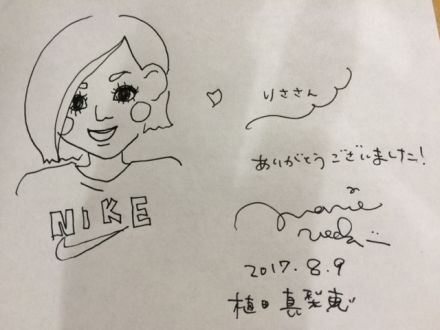 りささん
ありがとうございました!
marie
ueda
2017.8.9
植田真梨恵
NIKE